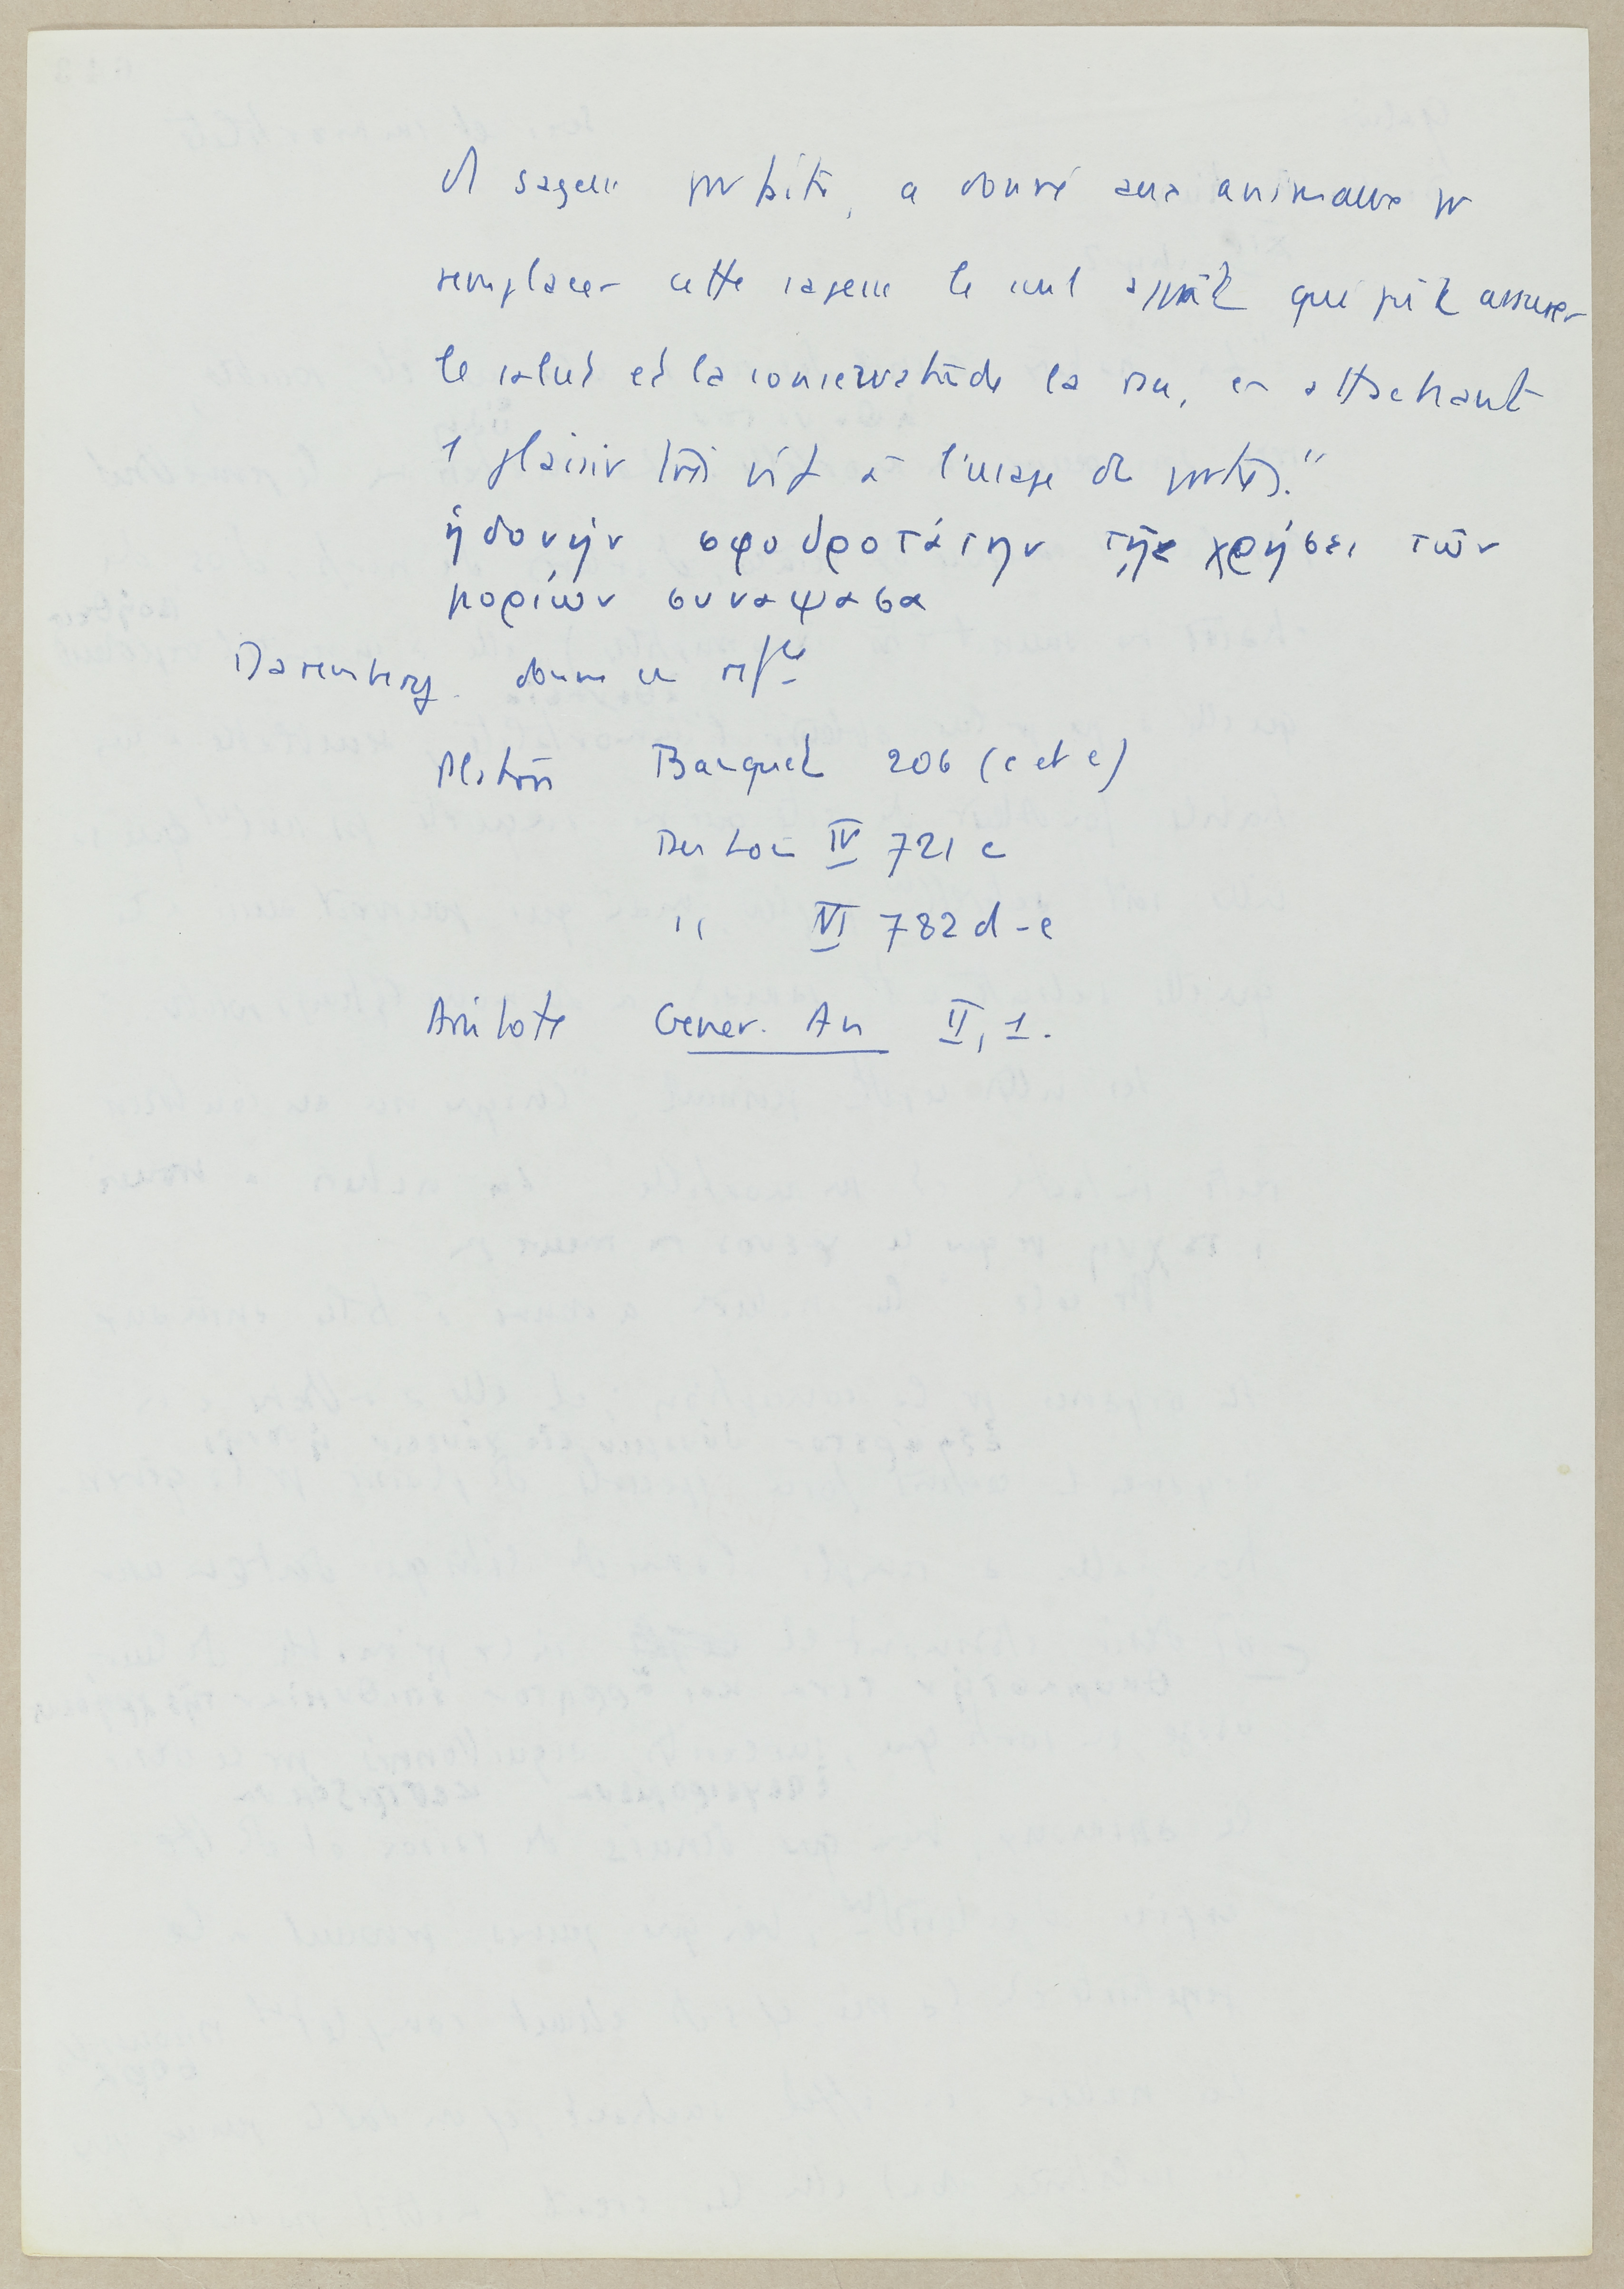 de sagesse parfaite, a donné aux animaux pr
remplacer cette sagesse le seul appât qui pût assurer
le salut et la conservatiõ de la race, en attachant
1 plaisir très vif à l'usage de parties."
ἡδονὴν σφοδροτάτην τῇ χρήσει τῶν
μορίων συναψασα
Daremberg donne en réfce
Platon Banquet 206 (c et e)
Des Lois IV 721 c
" VI 782 d-e
Aristote Gener. An II, 1.